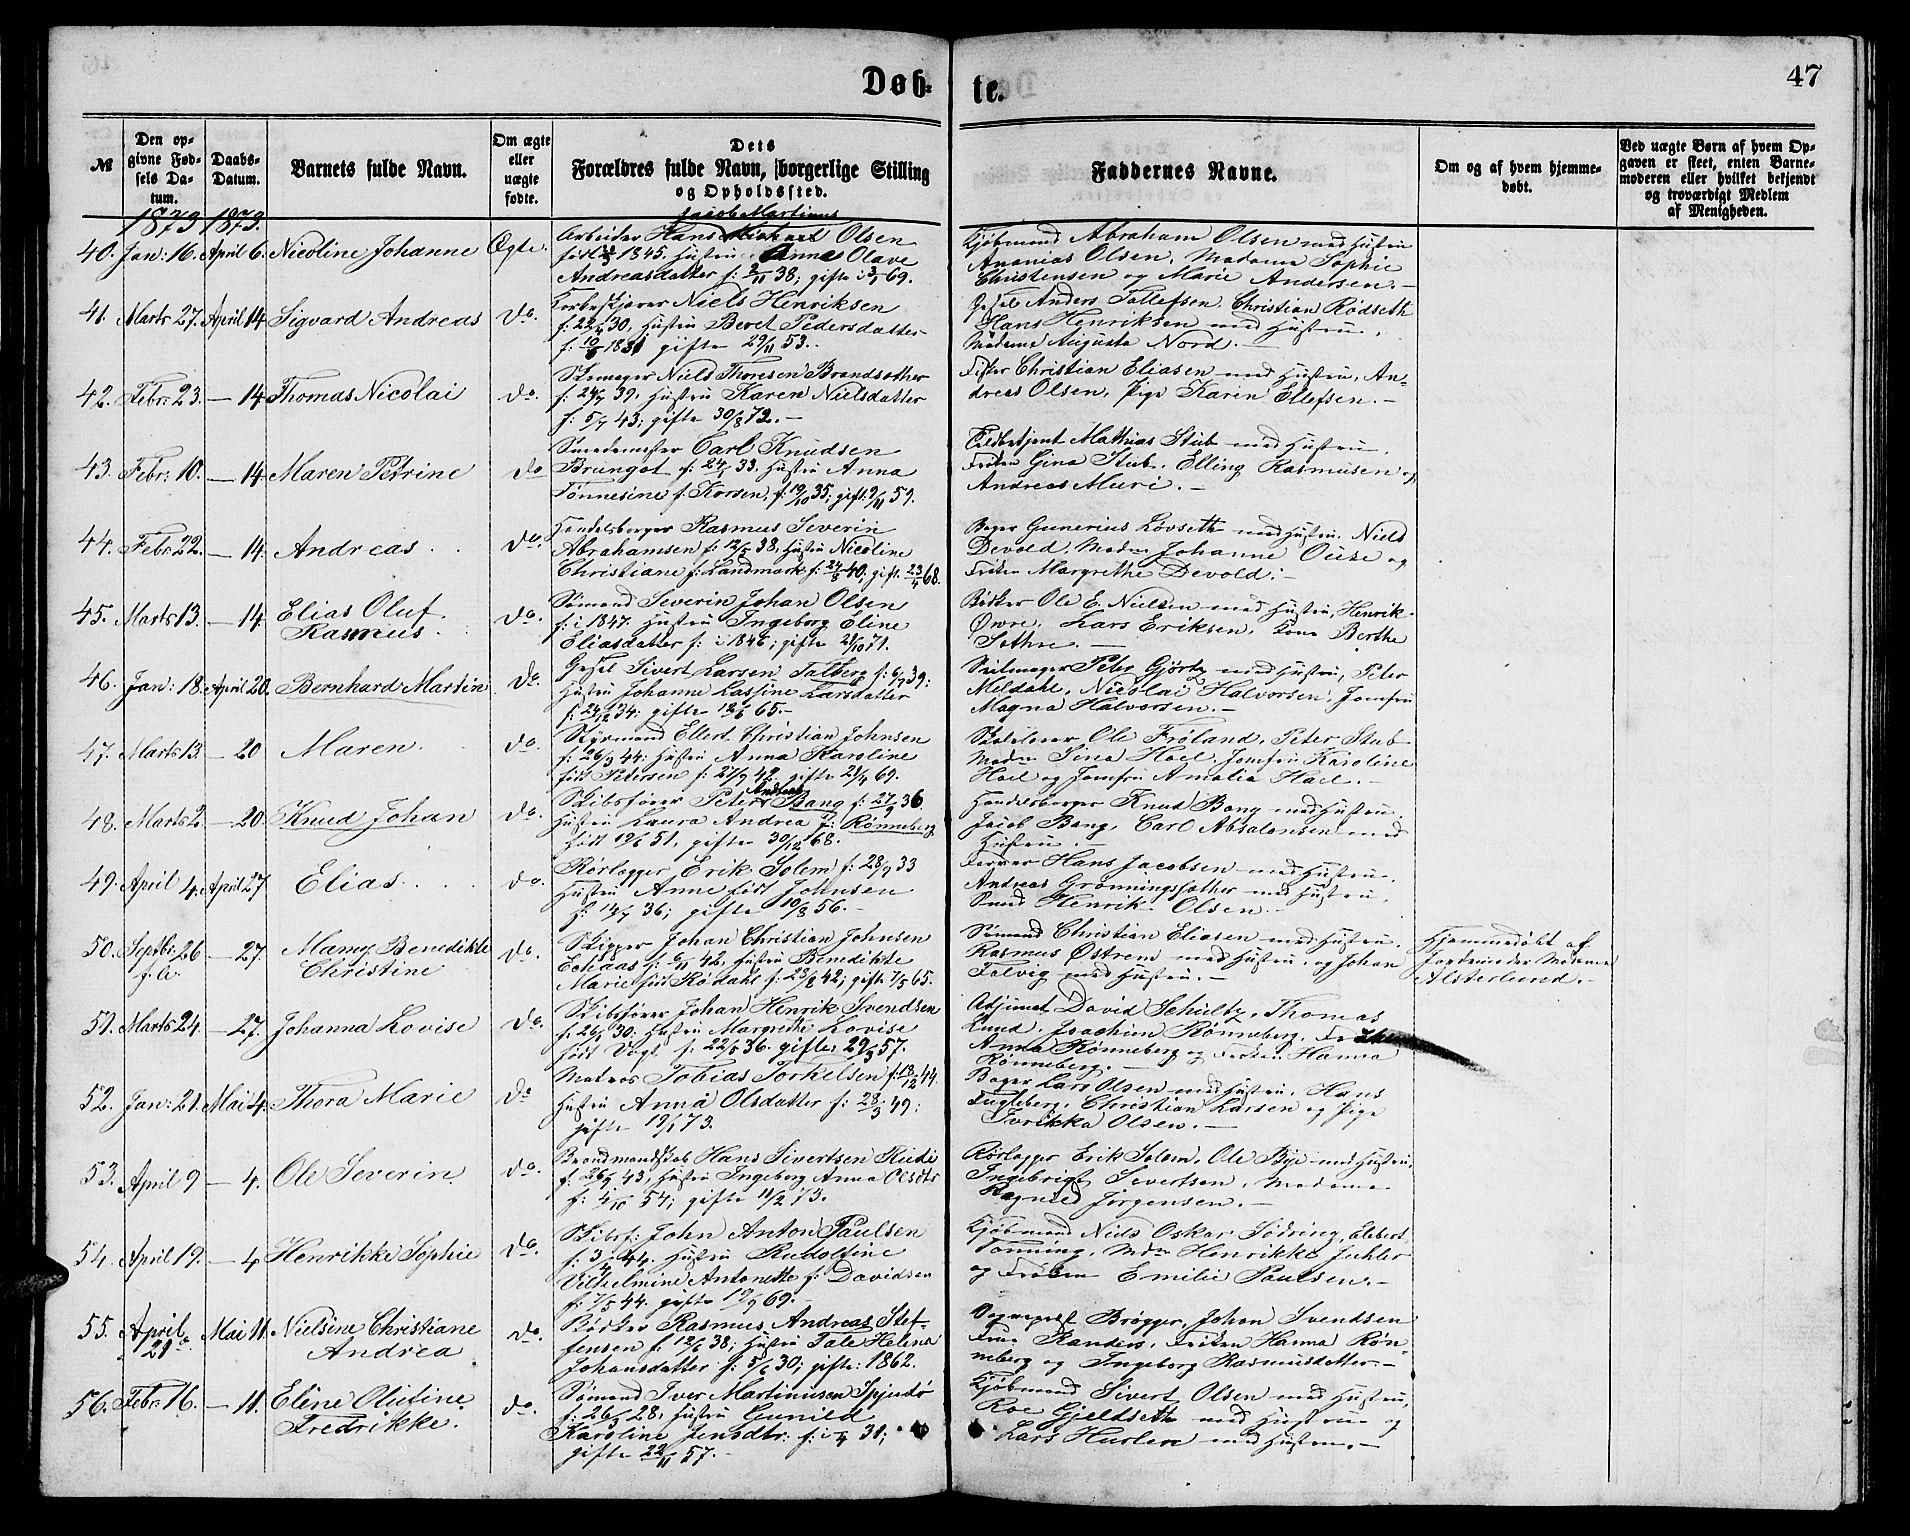 Døb-
te.
47
№
Den op-
givne Fød-
sels Da-
tum.
Daabs-
Datum.
Barnets fulde Navn.
Om ægte
eller
uægte
fødte.
Dets
Forældres fulde Navn, borgerlige Stilling
og Opholdssted.
Faddernes Navne.
Om og af hvem hjemme-
døbt.
Ved uægte Børn af hvem Op-
gaven er skeet, enten Barne-
moderen eller hvilket bekjendt
og troværdigt Medlem
af Menigheden.
1873 1873.
40. Jan: 16. April 6. Nicoline Johanne Ægte.
Jacob Martinus
Arbeider Hans Michael Olsen
født 1845. Hustru Anna Olave
Andreasdatter f: 38; gifte i 69.
Kjøbmand Abraham Olsen med Hustru
Ananias Olsen, Madame Sophie
Christensen og Marie Andersen.-
41. Marts 27. April 14 Sigvard Andreas do.
Niels Henriksen
30, Hustru Beret Pedersdatter
f: 1831 gifte 29/11 53.
Anders Tollefsen, Christian Rødseth
Hans Henriksen med Hustru,
Madame Augusta Nord.-
42. Febr: 23. - 14 Thomas Nicolai do.
Niels Thoresen Brandsæther
39, Hustru Karen Nielsdatter
43; gifte 30/8 72.-
Fisker Christian Eliasen med Hustru, An-
dreas Olsen, Pige Karin Ellefsen.-
43. Febr: 10. - 14 Maren Petrine do
Smedemester Carl Knudsen
Brunget 33. Hustru Anna
Tønnesine f. Korsen, f. 19/10 35; gift 9/11 59.
Mathias Stub med Hustru,
Frøken Gina Stub, Elling Rasmusen og
Andreas Muri.-
44. Febr 22. - 14. Andreas do.
Handelsborger Rasmus Severin
Abrahamsen 38, Hustru Nicoline
Christiane f. Landmark 40; gift. 23/4 68.
Bager Gunerius Løvseth med Hustru, Niels
Devold, Johanne Owre og
Frøken Margrethe Devold.-
45. Marts 13. - 14. Elias Oluf
Rasmus do.
Sømand Severin Johan Olsen
f: i 1847. Hustru Ingeborg Eline
Eliasdatter f: i 1846; gifte 2/10 71.
Bødker Ole E. Nielsen med Hustru, Henrik
Øwre, Lars Eriksen, Berthe
Sethre.-
46. Jan: 18. April 20. Bernhard Martin do.
Sivert Larsen Talberg 39;
Hustru Johanne Lassine Larsdatter
f: 24/12 34; gifte 65.-
Peter Gjørtz med Hustru, Peter
Meldahl, Nicolai Halvorsen, Jomfru
Magna Halvorsen.-
47. Marts 13. - 20 Maren do.
Styrmand Ellert Christian Johnsen
f: 26/3 44. Hustru Anna Karoline
født Petersen 42. gifte 69.
Skolelærer Ole Frøland, Peter Stub
Sina Hoel, Jomfru Karoline
Hoel og Jomfru Amalia Hoel.-
48. Marts 2. - 20. Knud Johan do.
Andreas
Skibsfører Peter Bang f: 27/9 36.
Hustru Laura Andrea f: Rønneberg
født 51, gifte 30/12 68.
Handelsborger Knud Bang med Hustru,
Jacob Bang, Carl Absalonsen med
Hustru.-
49. April 4. April 27 Elias do.
Erik Solem f: 33
Hustru Anne født Johnsen
36; gifte 10/8 56.-
Farver Hans Jacobsen med Hustru,
Andreas Grønningsæther med Hustru,
Smed Henrik Olsen.-
50. Septbr: 26
f. A. - 27. Mamy Benedikte
Christine do.
Skipper Johan Christian Johnsen
f: 6/11 42, Hustru Benedikte
Marie født Rødahl f: 23/8 42; gifte 7/5 65.
Sømand Christian Eliasen med Hustru,
Rasmus Østrem med Hustru, og Johan
Talvig med Hustru.-
Hjemmedøbt af
Jordemoder Madame
Alsterlund.-
51. Marts 24. - 27. Johanna Lovise do.
Skibsfører Johan Henrik Svendsen
30. Hustru Margrethe Lovise
født Vogt 36. gifte: 29/3 57.
Adjunct David Schultz, Thomas
Lund, Joachim Rønneberg, Frøken
Anna Rønneberg og Frøken Hanna
Rønneberg.-
52. Jan: 21. Mai 4. Thora Marie do
Matros Tobias Torkelsen f: 18/12 44.
Hustru Anna Olsdatter f: 28/3 49;
gifte 19/1 73.
Bager Lars Olsen med Hustru, Hans
Fugleberg, Christian Larsen og Pige
Ivrikka Olsen.-
53. April 9 - 4. Ole Severin do.
Brandmandskab Hans Sivertsen Hude
43, Hustru Ingeborg Anna Olsdtr
f: 4/10 54; gifte 11/2 73.
Rørlægger Erik Solem, Ole Bye med Hustru,
Ingebrigt Severtsen, Madame
Ragnild Jørgensen.-
54. April 19. - 4 Henrikke Sophie do.
Skibsf: John Anton Paulsen
44. Hustru Rudolfine
Vilhelmine Antonette f: Davidsen
f: 7/5 44. gifte 69.-
Kjøbmand Niels Oskar Sødring, Elebert
Tonning, Henrikke Juhler
og Frøken Emilie Paulsen.-
55. April
21 Mai 11. Nielsine Christiane
Andrea do.
Bødker Rasmus Andreas Stef-
fensen f: 12/6 38; Hustru Tale Helena
Johansdatter f: 5/6 30; gifte: 1862.
Brøgger, Johan Svendsen
Frue Randers, Frøken Hanna Røn-
neberg og Ingeborg Rasmusdatter.-
56. Febr: 16. - 11. Eline Olufine
Fredrikke. do.
Sømand Iver Martinusen Spjudø
28, Hustru Gunild
Karoline Jensdtr: f: 31;
gifte 22/11 57.-
Kjøbmand Sivert Olsen med Hustru,
Roe Gjeldseth med Hustru og
Lars Huslen med Hustru.-